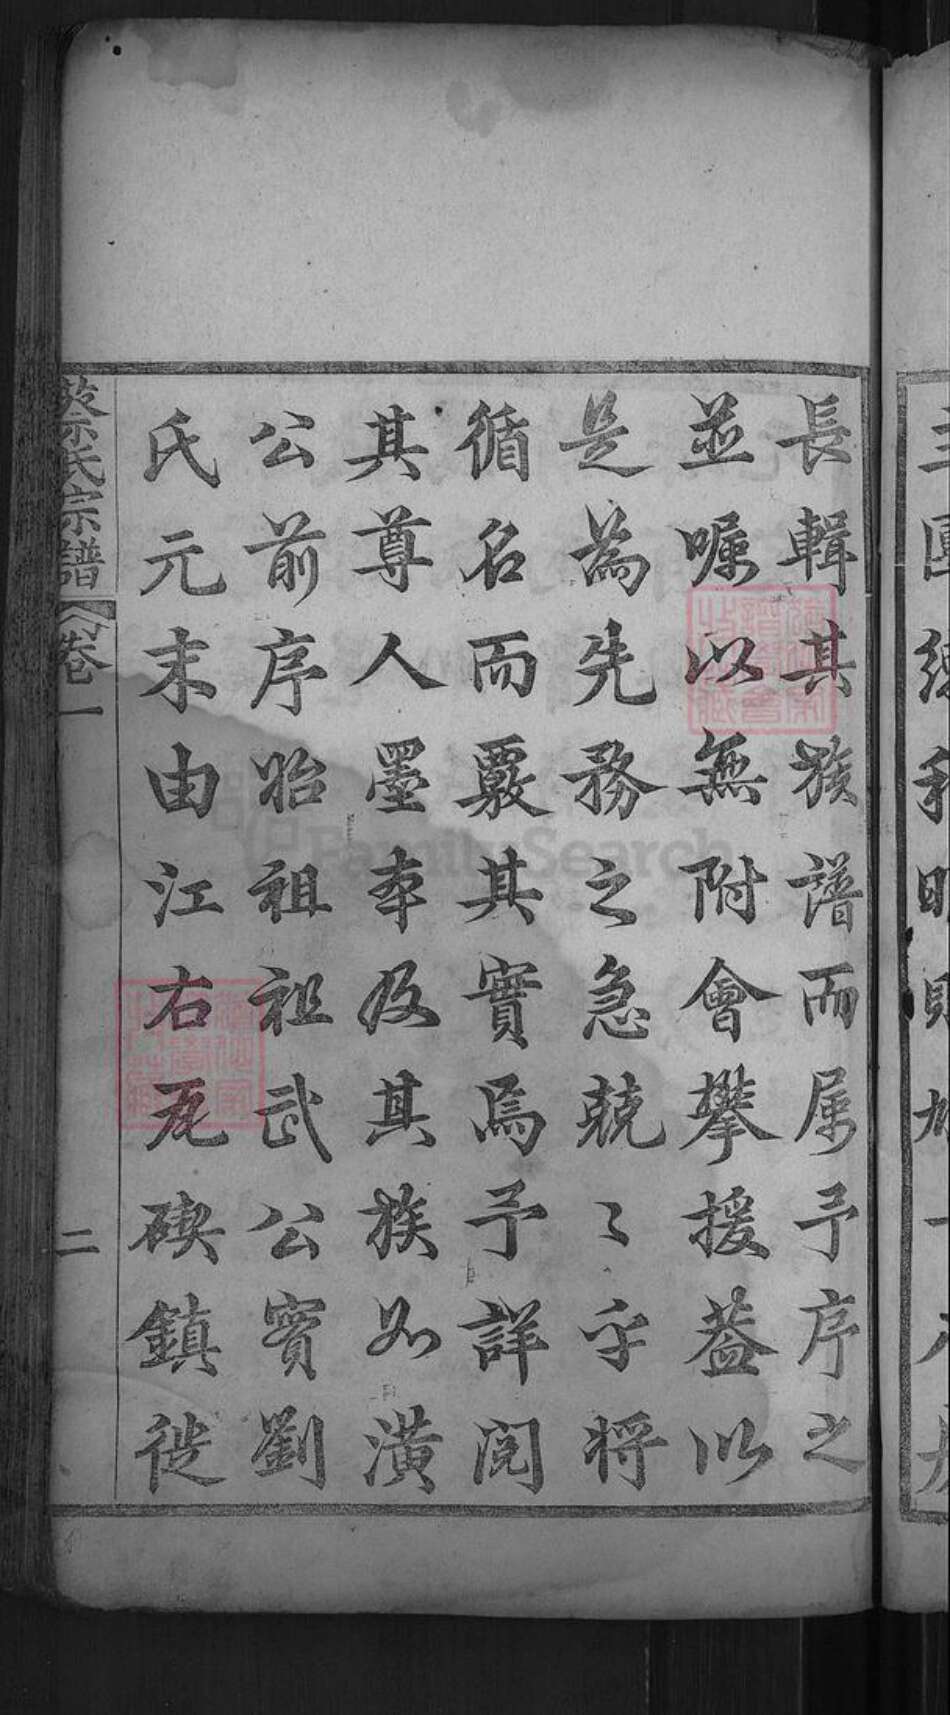 長輯其族譜而属予序之
並嘱以無附會攀援蓋以
是為先務之急兢〻乎將
循名而覈其實焉予詳閱
其尊人墨本及其族如潢
公前序始祖祖武公實劉
氏元末由江右瓦磚鎮徙
蔡氏宗譜 卷一 二
FamilySearch